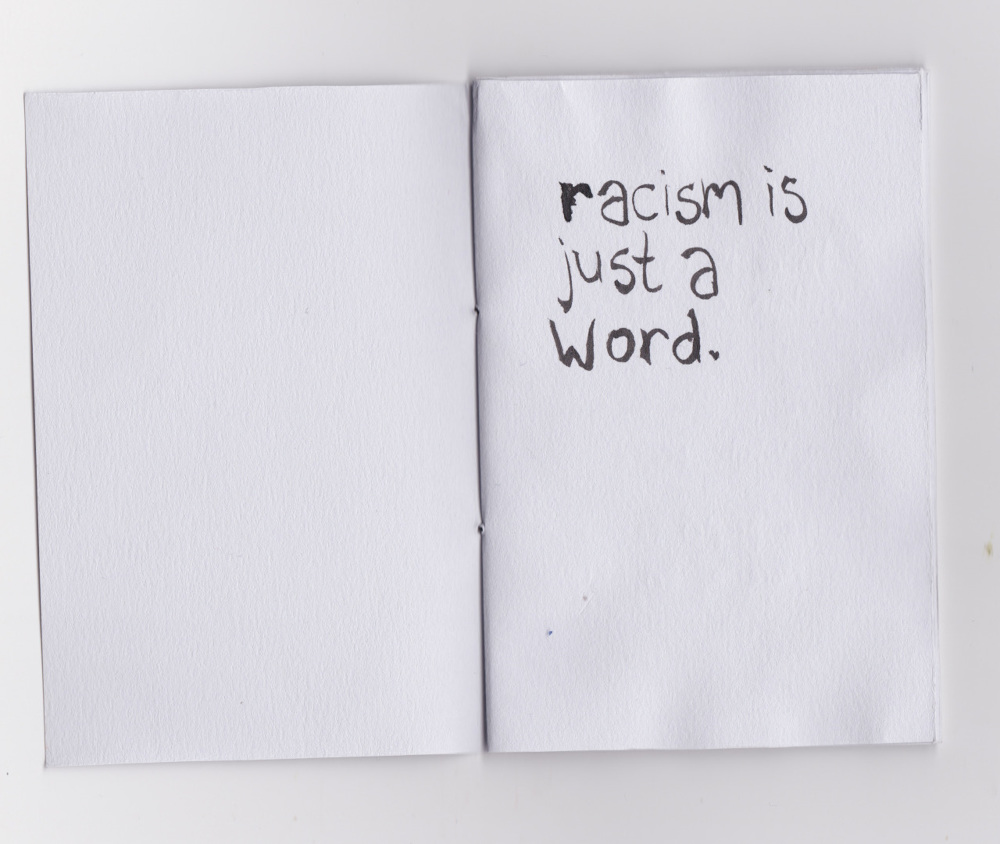 racism is
just a
word.